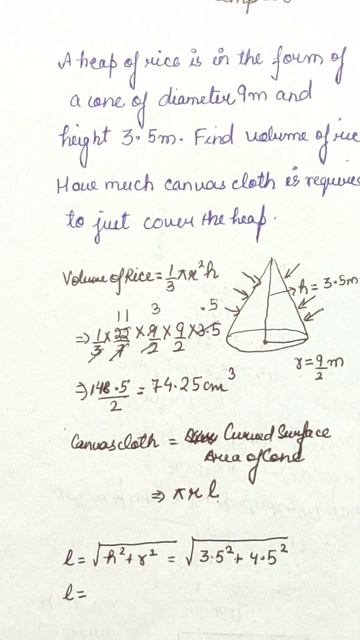 A heap of rice is in the form of
a cone of diameter 9m and
height 3.5m. Find volume of rice
How much canvas cloth is require
to just cover the heap.
Volume of Rice = 1/3 πr²h
h = 3.5m
11 3 .5
⇒ 1/3 × 22/7 × 9/2 × 9/2 × 3.5
r = 9/2 m
⇒ 148.5/2 = 74.25cm³
Canvas cloth = Curved Surface
Area of Cone
⇒ πrl
l = √h²+r² = √3.5²+4.5²
l =